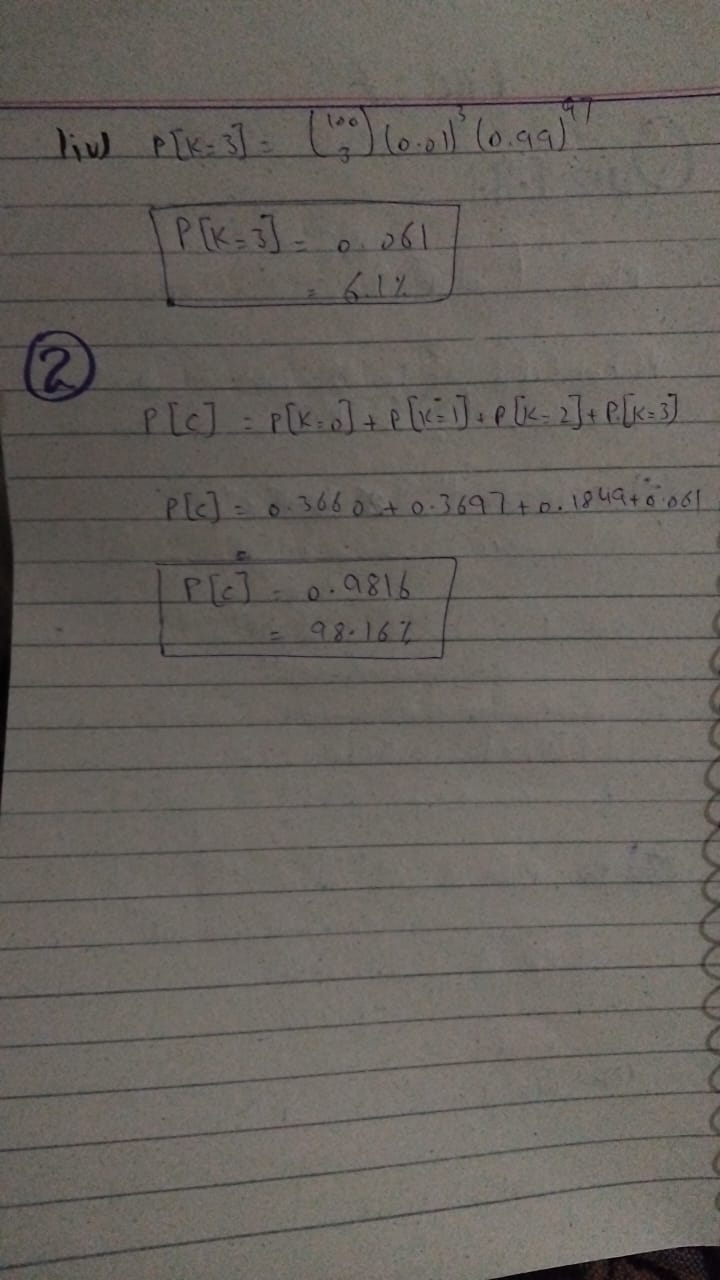 (iv) P[K=3] = (100 3) (0.01)³ (0.99)⁹⁷
P[K=3] = 0.061
= 6.1%
2
P[C] = P[K=0] + P[K=1] + P[K=2] + P[K=3]
P[C] = 0.3660 + 0.3697 + 0.1849 + 0.061
P[C] = 0.9816
= 98.16%